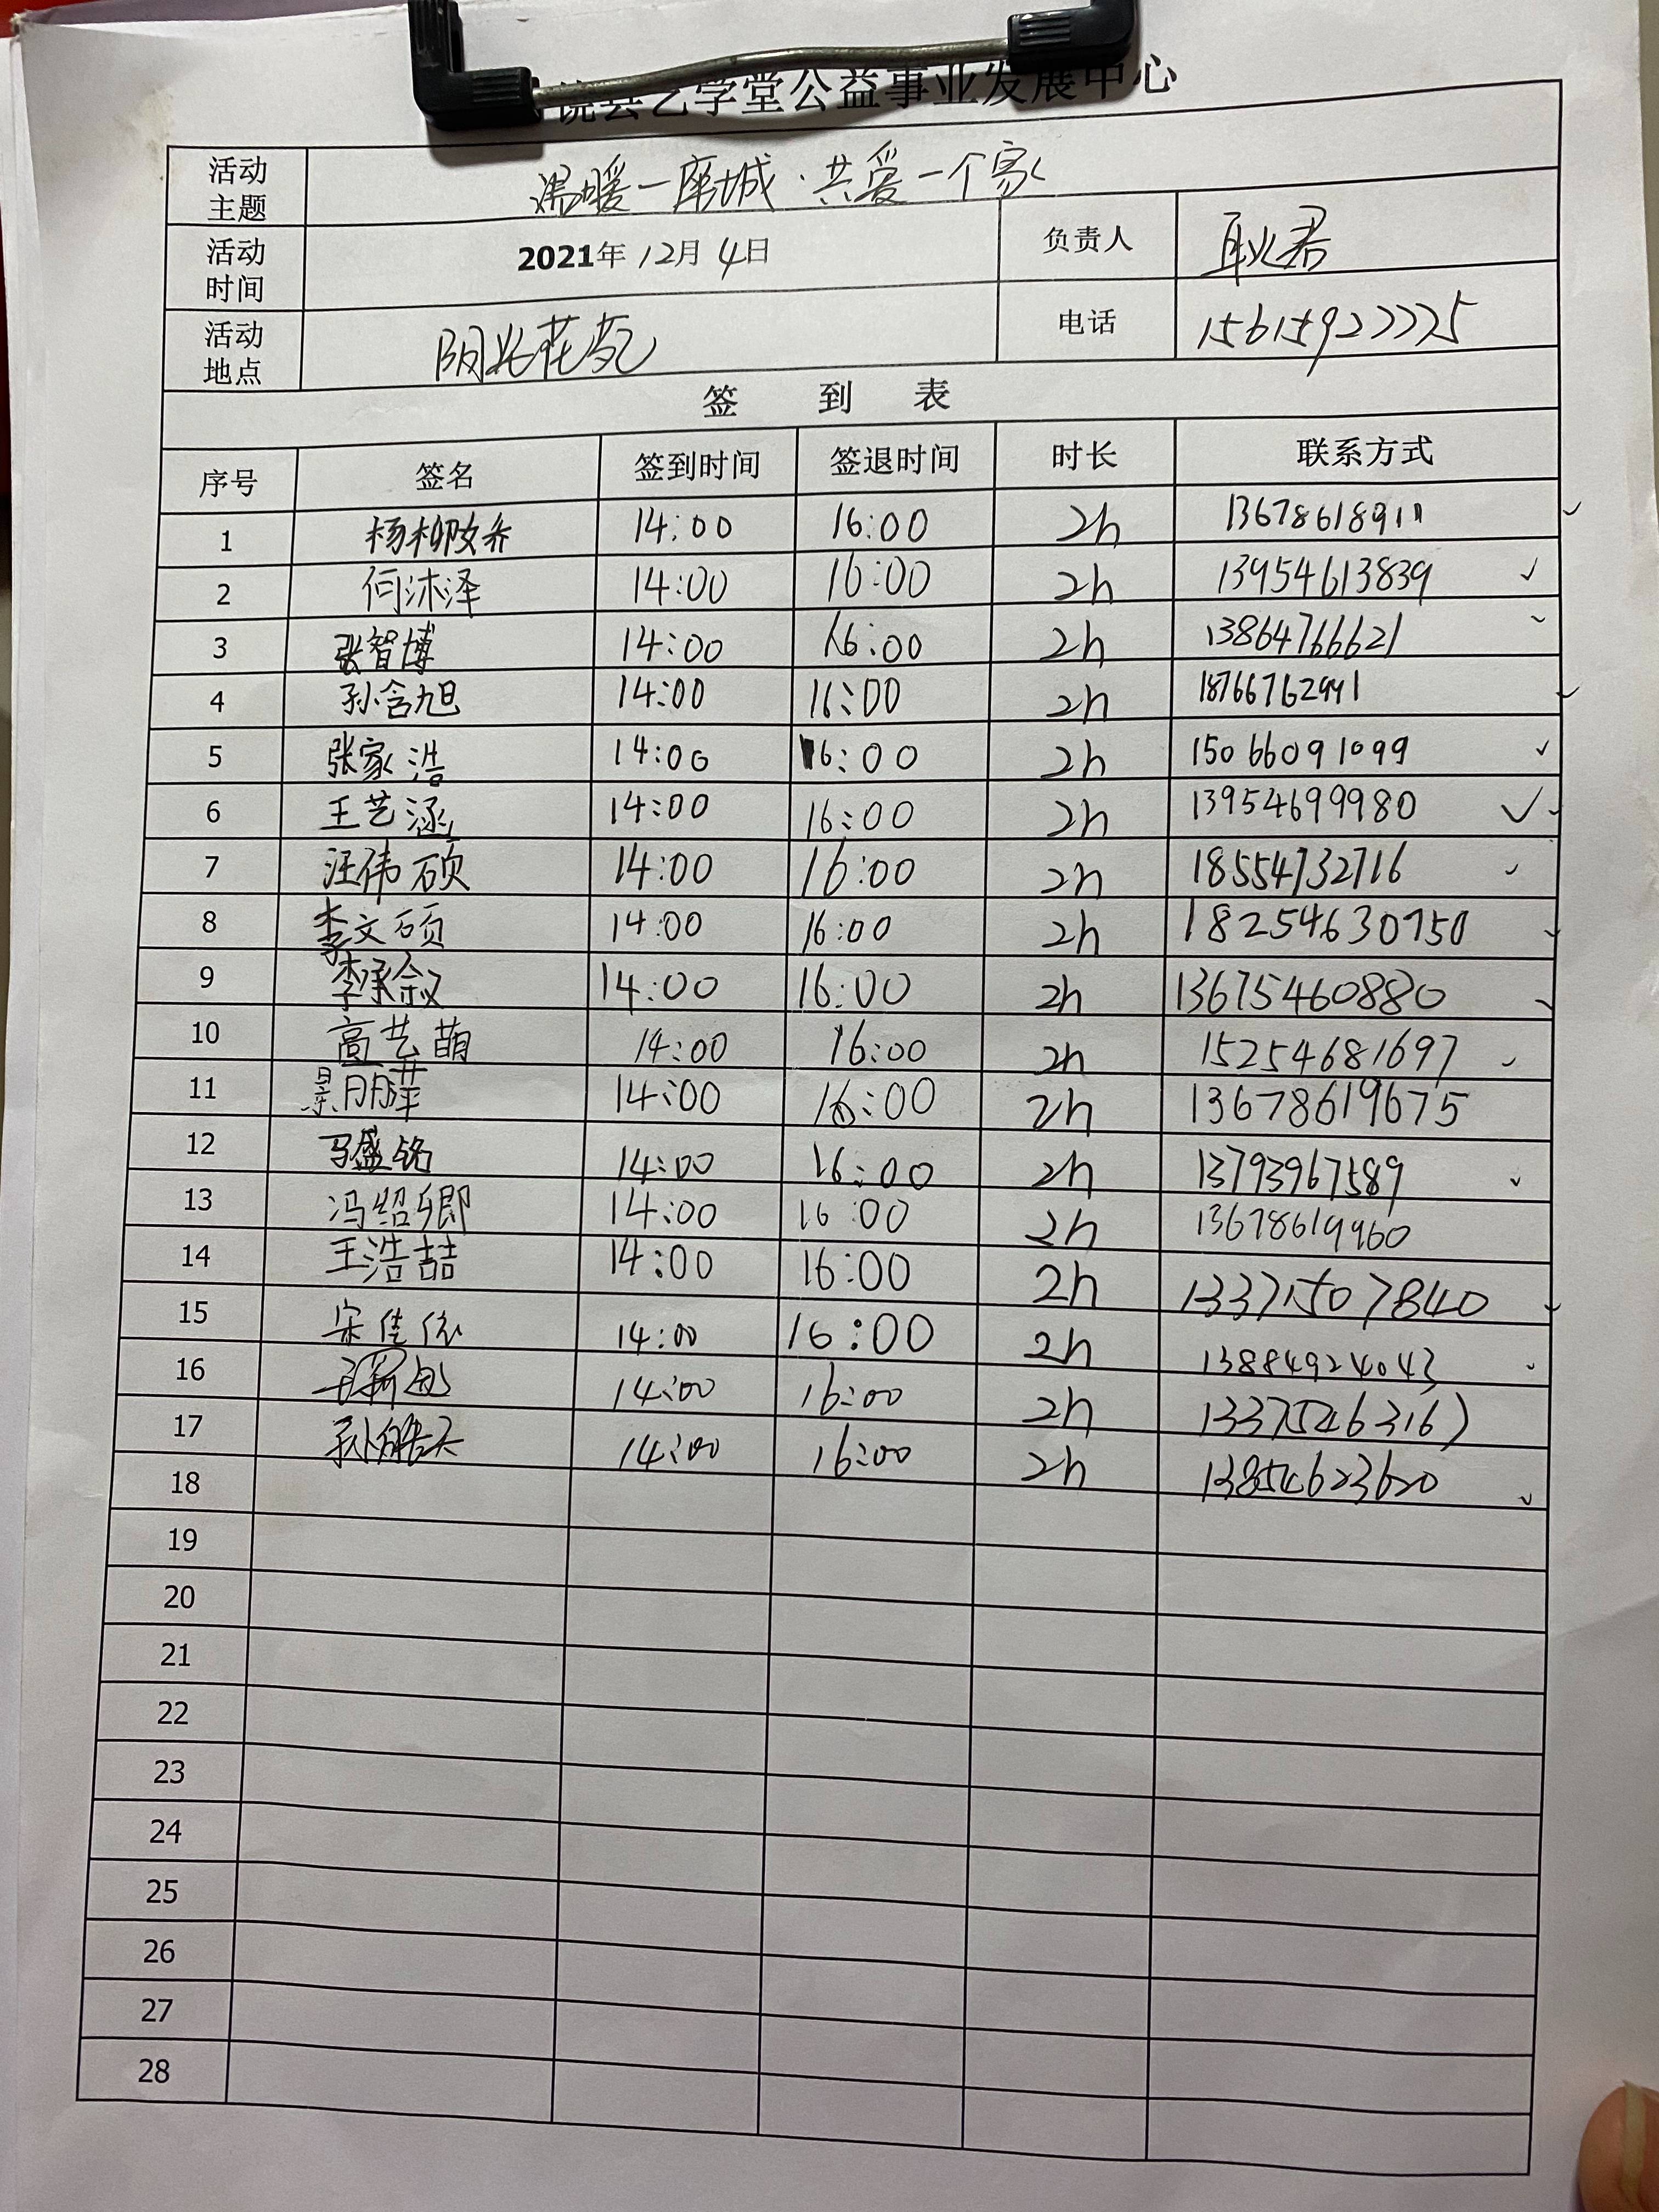 饶县艺学堂公益事业发展中心
活动主题 温暖一座城·共爱一个家
活动时间 2021年12月4日 负责人 耿君
活动地点 阳光花苑 电话 15615922225
签 到 表
序号 签名 签到时间 签退时间 时长 联系方式
1 杨柳依禾 14:00 16:00 2h 13678618911
2 何沐泽 14:00 16:00 2h 13954613839
3 张智博 14:00 16:00 2h 13864766621
4 孙含旭 14:00 16:00 2h 18766762991
5 张家浩 14:00 16:00 2h 15066091099
6 王艺涵 14:00 16:00 2h 13954699980
7 汪伟硕 14:00 16:00 2h 18554732716
8 李文硕 14:00 16:00 2h 18254630750
9 李承叙 14:00 16:00 2h 13675460880
10 高艺萌 14:00 16:00 2h 15254681697
11 景朋 14:00 16:00 2h 13678619675
12 马盛铭 14:00 16:00 2h 13793967589
13 冯绍卿 14:00 16:00 2h 13678619960
14 王浩喆 14:00 16:00 2h 13371507840
15 宋佳依 14:00 16:00 2h 13884924043
16 14:00 16:00 2h
17 孙皓天 14:00 16:00 2h 13854623620
18
19
20
21
22
23
24
25
26
27
28